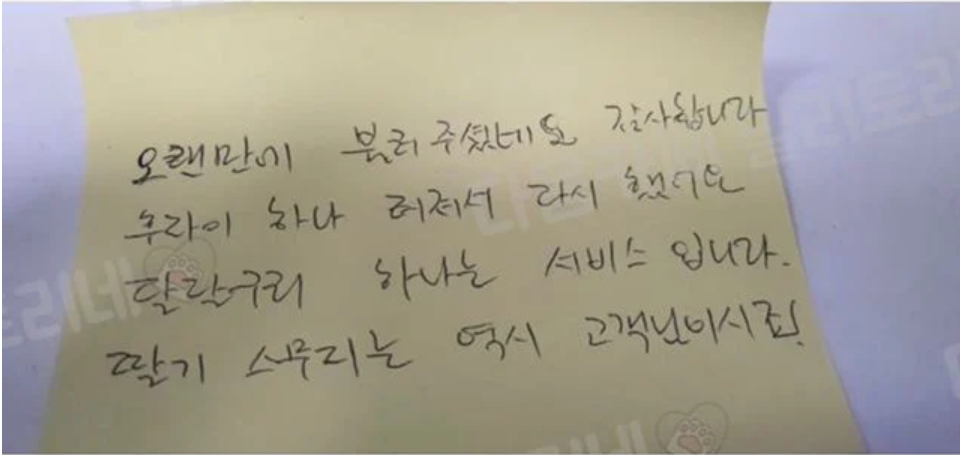 오랜만에 불러주셨네요 감사합니다
후라이 하나 터져서 다시 했어요
달달구리 하나는 서비스 입니다.
딸기 스무디는 역시 고객님이시죠!